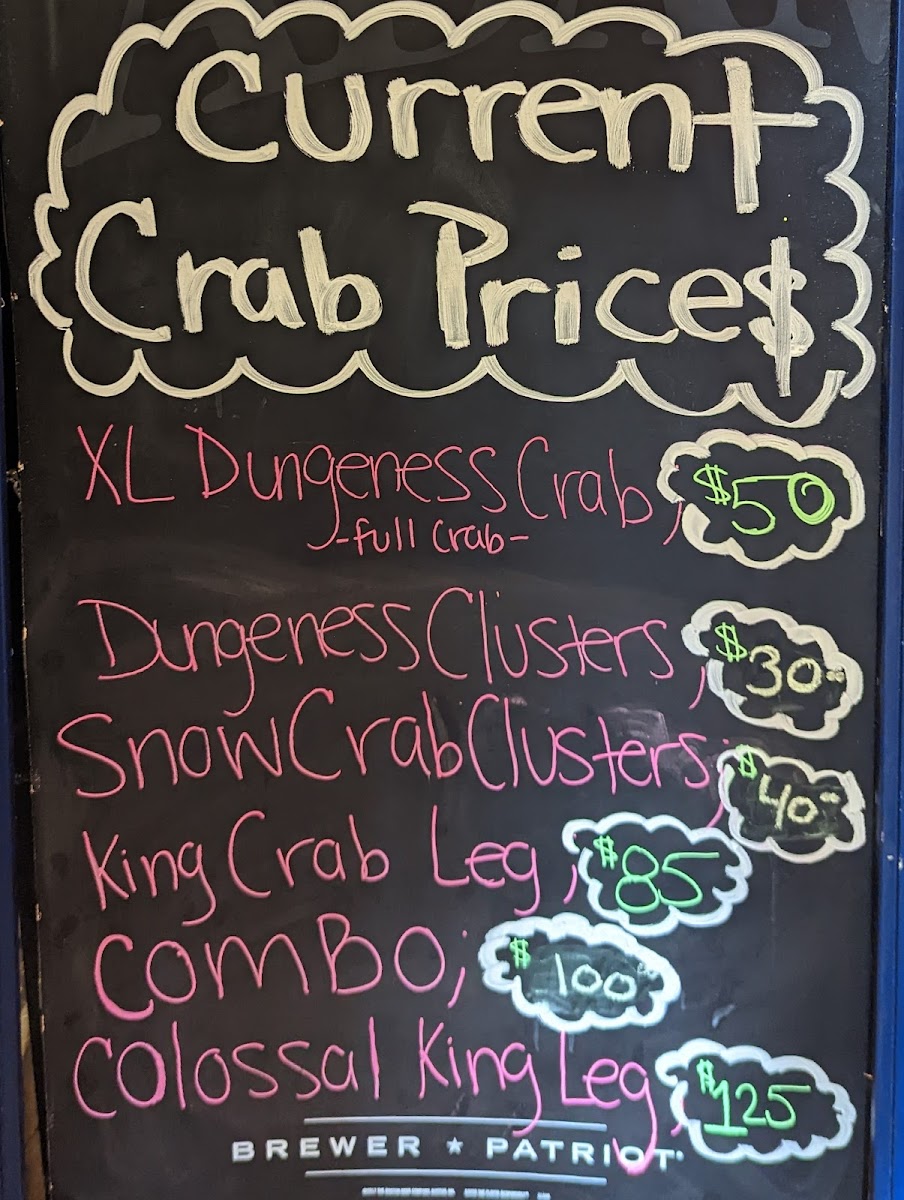 Current
Crab Price$
XL Dungeness Crab; $50
-full crab-
Dungeness Clusters; $30.00
Snow Crab Clusters; $40.00
King Crab Leg; $85
COMBO; $100.00
Colossal King Leg; $125
BREWER ★ PATRIOT